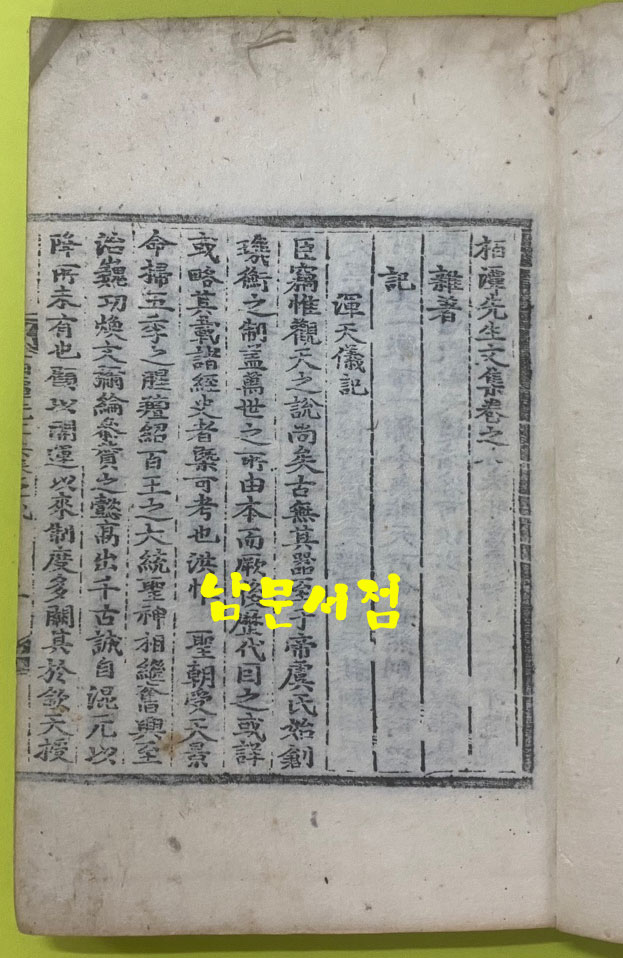 栢潭先生文集卷之
雜著
記
渾天儀記
臣竊惟觀天之說尚矣古無其器至于帝虞氏始創
璣衡之制盖萬世之所由本而厥後歷代因之或詳
或略其載諸經史者槩可考也洪惟 聖朝受天景
命掃五季之腥羶紹百王之大統聖神相繼奮興至
治巍功煥文彌綸參賛之懿高出千古誠自混元以
降所未有也顧以開運以來制度多闕其於欽天授
남문서점